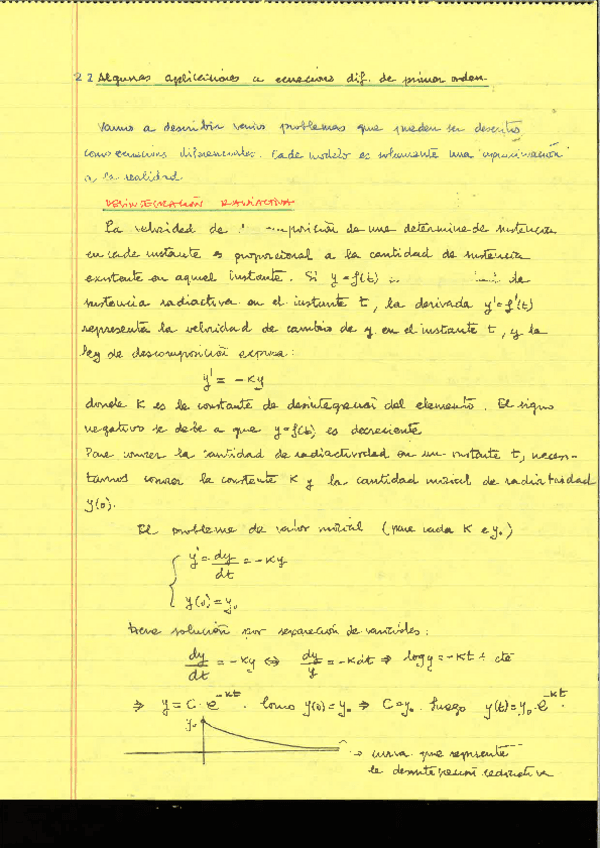 2 2 Algunas aplicaciones a ecuaciones dif. de primer orden.
Vamos a describir varios problemas que pueden ser descritos
como ecuaciones diferenciales. Cada modelo es solamente una aproximación
a la realidad.
DESINTEGRACIÓN RADIACTIVA
La velocidad de composición de una determinada sustancia
en cada instante es proporcional a la cantidad de sustancia
existente en aquel instante. Si y = f(t) de
sustancia radiactiva en el instante t, la derivada y' = f'(t)
representa la velocidad de cambio de y en el instante t, y la
ley de descomposición expresa:
y' = -Ky
donde K es la constante de desintegración del elemento. El signo
negativo se debe a que y = f(t) es decreciente
Para conocer la cantidad de radiactividad en un instante t, necesi-
tamos conocer la constante K y la cantidad inicial de radiactividad
y(0).
El problema de valor inicial (para cada K e y₀)
y' = dy/dt = -Ky
y(0) = y₀
tiene solución por separación de variables:
dy/dt = -Ky ⇔ dy/y = -Kdt ⇒ log y = -Kt + cte
⇒ y = C · e^-Kt. Como y(0) = y₀ ⇒ C = y₀. Luego y(t) = y₀ · e^-Kt.
y₀
→ curva que representa
la desintegración radiactiva